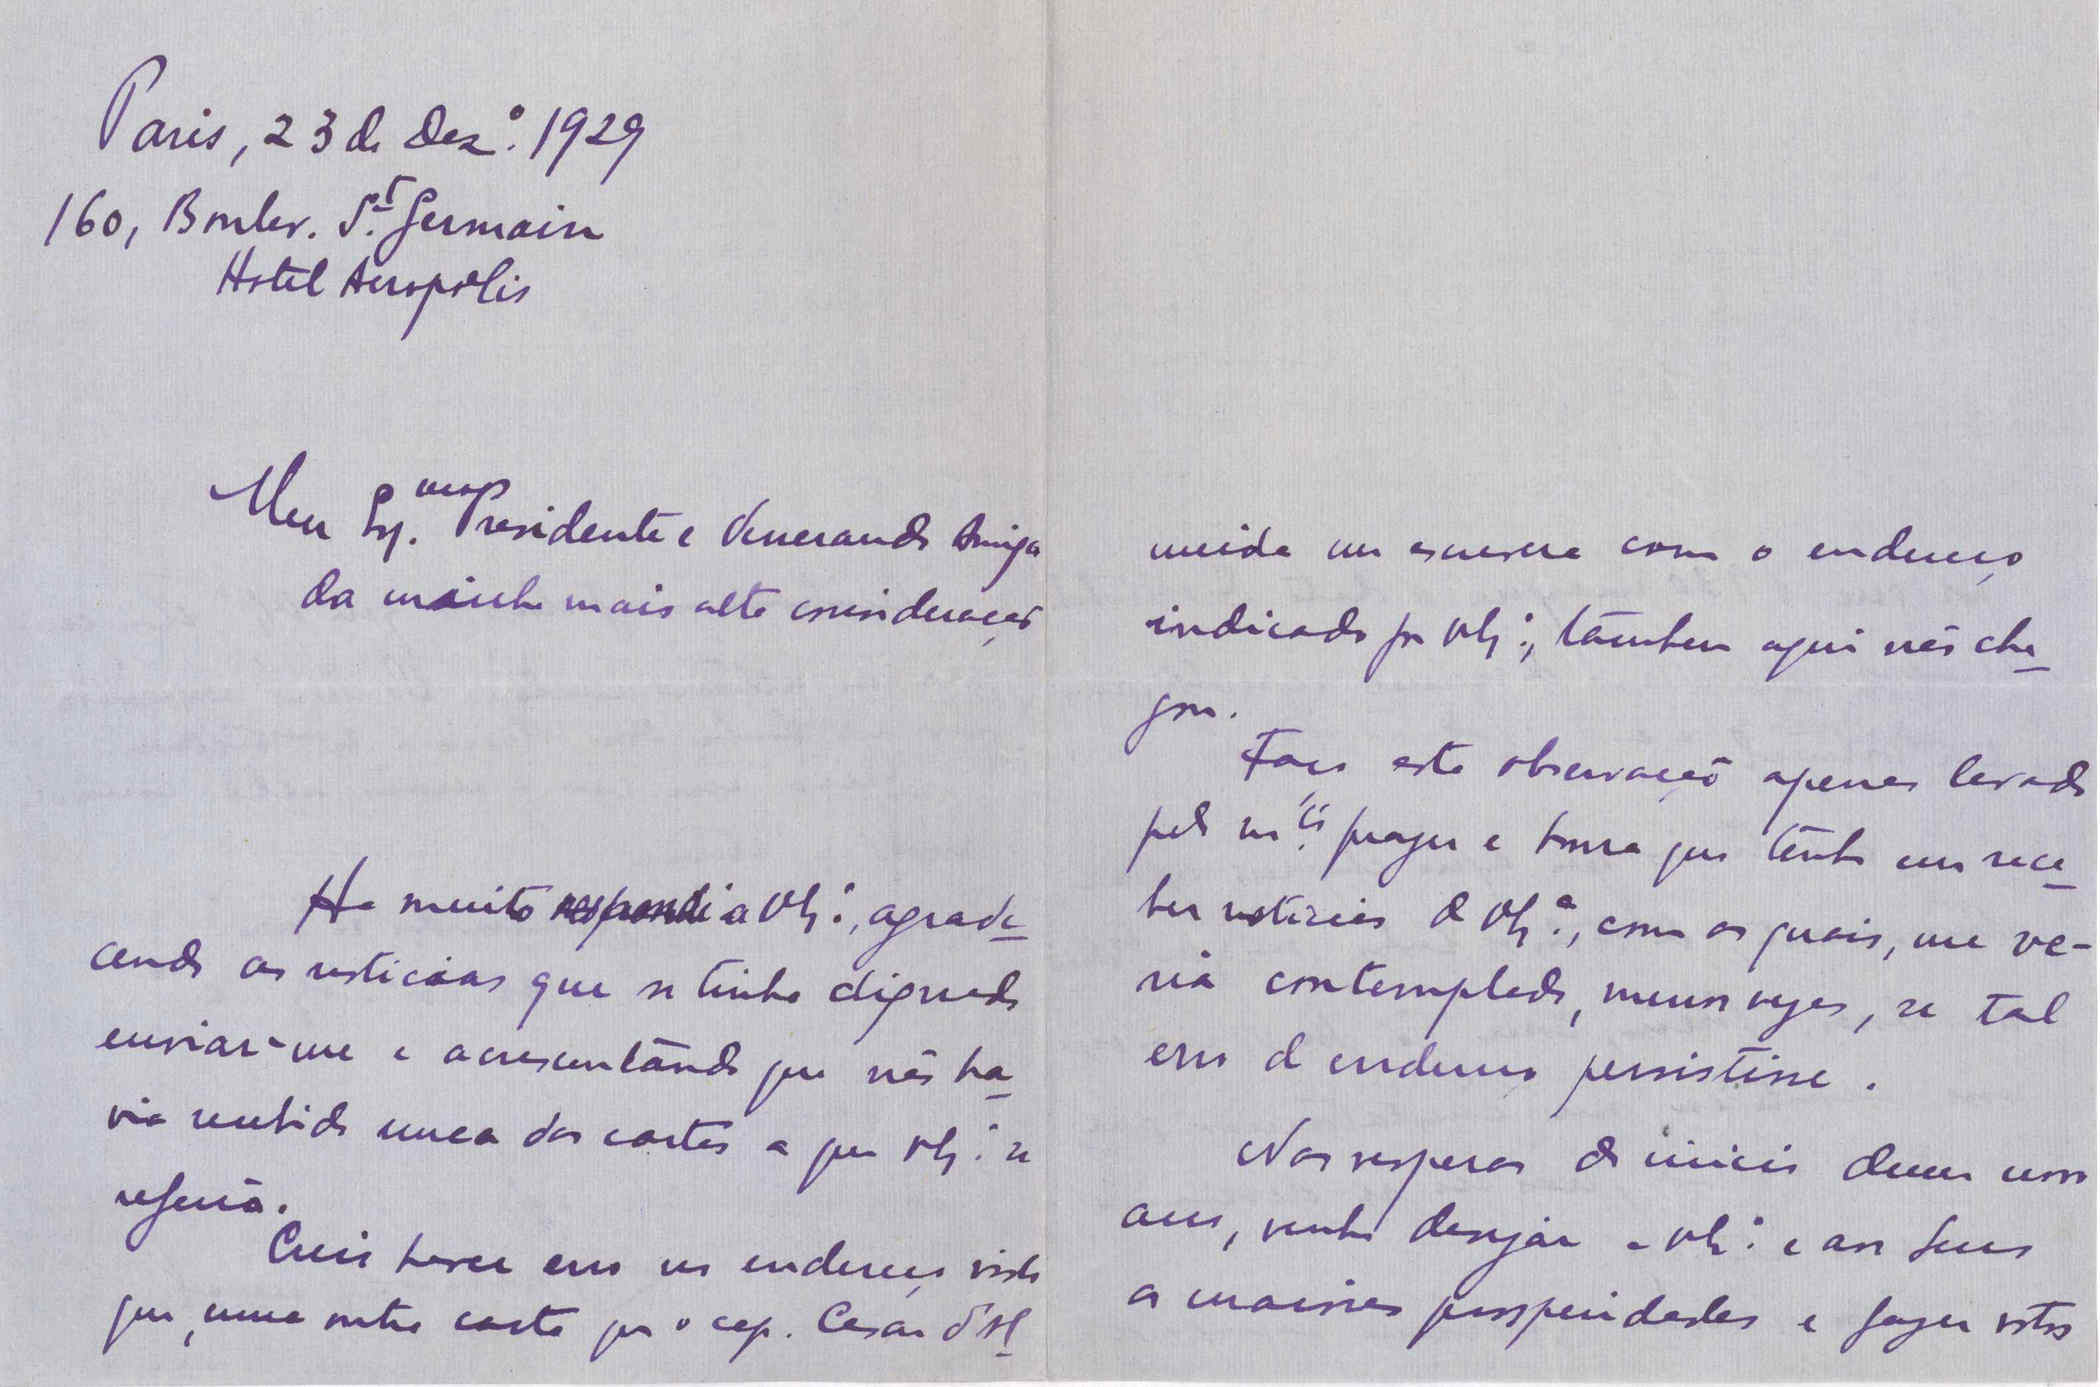 Paris, 23 de Dez.º 1929
160, Boulev. St. Germain
Hotel Acropolis
Meu Ex.mo Presidente e Venerando Amigo
da minha mais alta consideração
Ha muito respondi a V. Ex.ª, agrade-
cendo as noticias que se tinha dignado
enviar-me e acrescentando que não ha-
via recebido nunca das cartas a que V. Ex.ª se
referia.
Creio haver erro no endereço visto
que, numa outra carta que o cap. Cesar d'Al-
meida me escreveu com o endereço
indicado por V. Ex.ª, tambem aqui não che-
gou.
Faço esta observação apenas levado
pelo m.to prazer e honra que tenho em rece-
ber noticias de V. Ex.ª, com as quais, me ve-
ria contemplado, menos vezes, se tal
erro d endereço persistisse.
Nas vesperas do inicio dum novo
ano, venho desejar a V. Ex.ª e aos seus
as maiores prosperidades e fazer votos